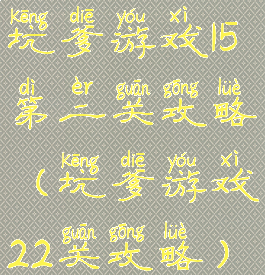 kēng diē yóu xì
坑爹游戏15
dì èr guān gōng lüè
第二关攻略
kēng diē yóu xì
(坑爹游戏
guān gōng lüè
22关攻略)